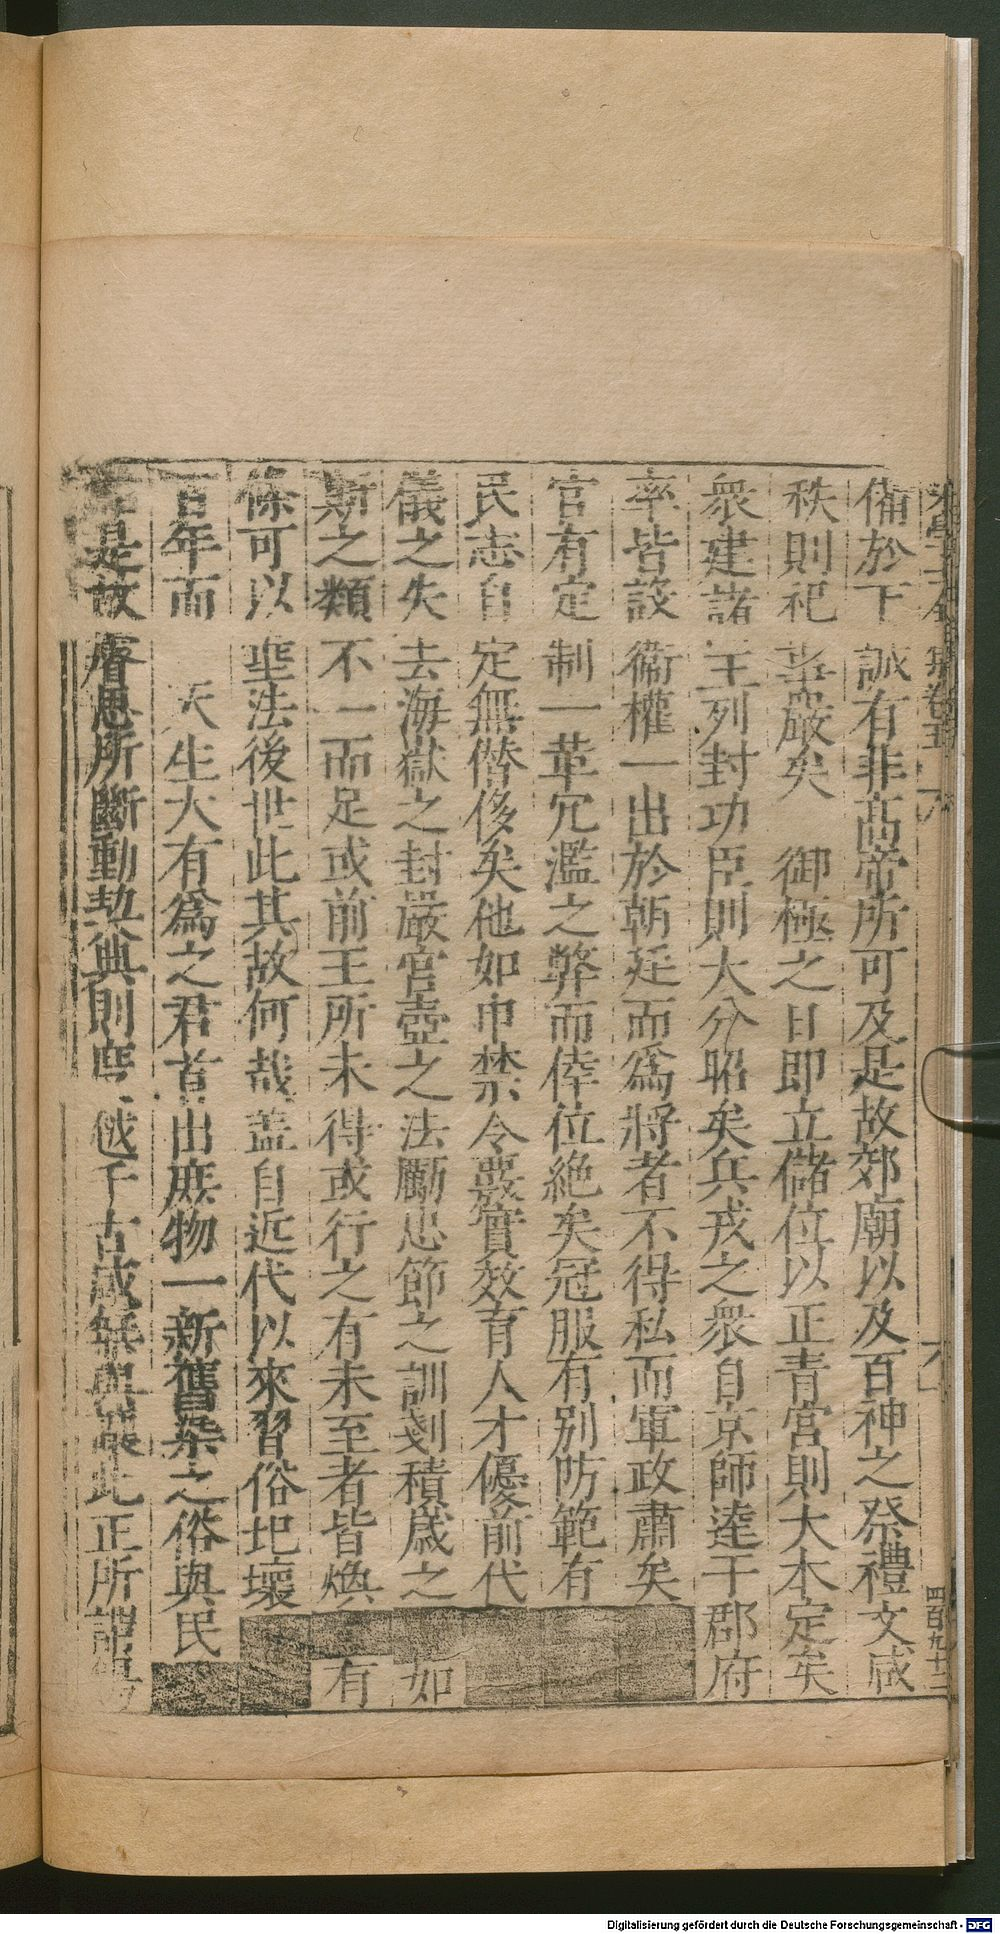 備於下誠有非高帝所可及是故郊廟以及百神之祭禮文咸
秩則祀嚴矣 御極之日即立儲位以正青宮則大本定矣
衆建諸王列封功臣則大分昭矣兵戎之衆自京師逹于郡府
率皆設衞權一出於朝廷而爲將者不得私而軍政肅矣
官有定制一革冗濫之弊而倖位絶矣冠服有别防範有
民志自定無僭侈矣他如申禁令覈實效育人才優前代
儀之失去海嶽之封嚴宮壼之法勵忠節之訓剗積歲之 如
斯之類不一而足或前王所未得或行之有未至者皆煥 有
條可以垩法後世此其故何哉盖自近代以來習俗圯壞
百年而 天生大有爲之君首出庶物一新舊染之俗與民
是故睿思所斷動契典則 越千古咸無與 此正所謂
卷五
六
四百九十二
Digitalisierung gefördert durch die Deutsche Forschungsgemeinschaft - DFG